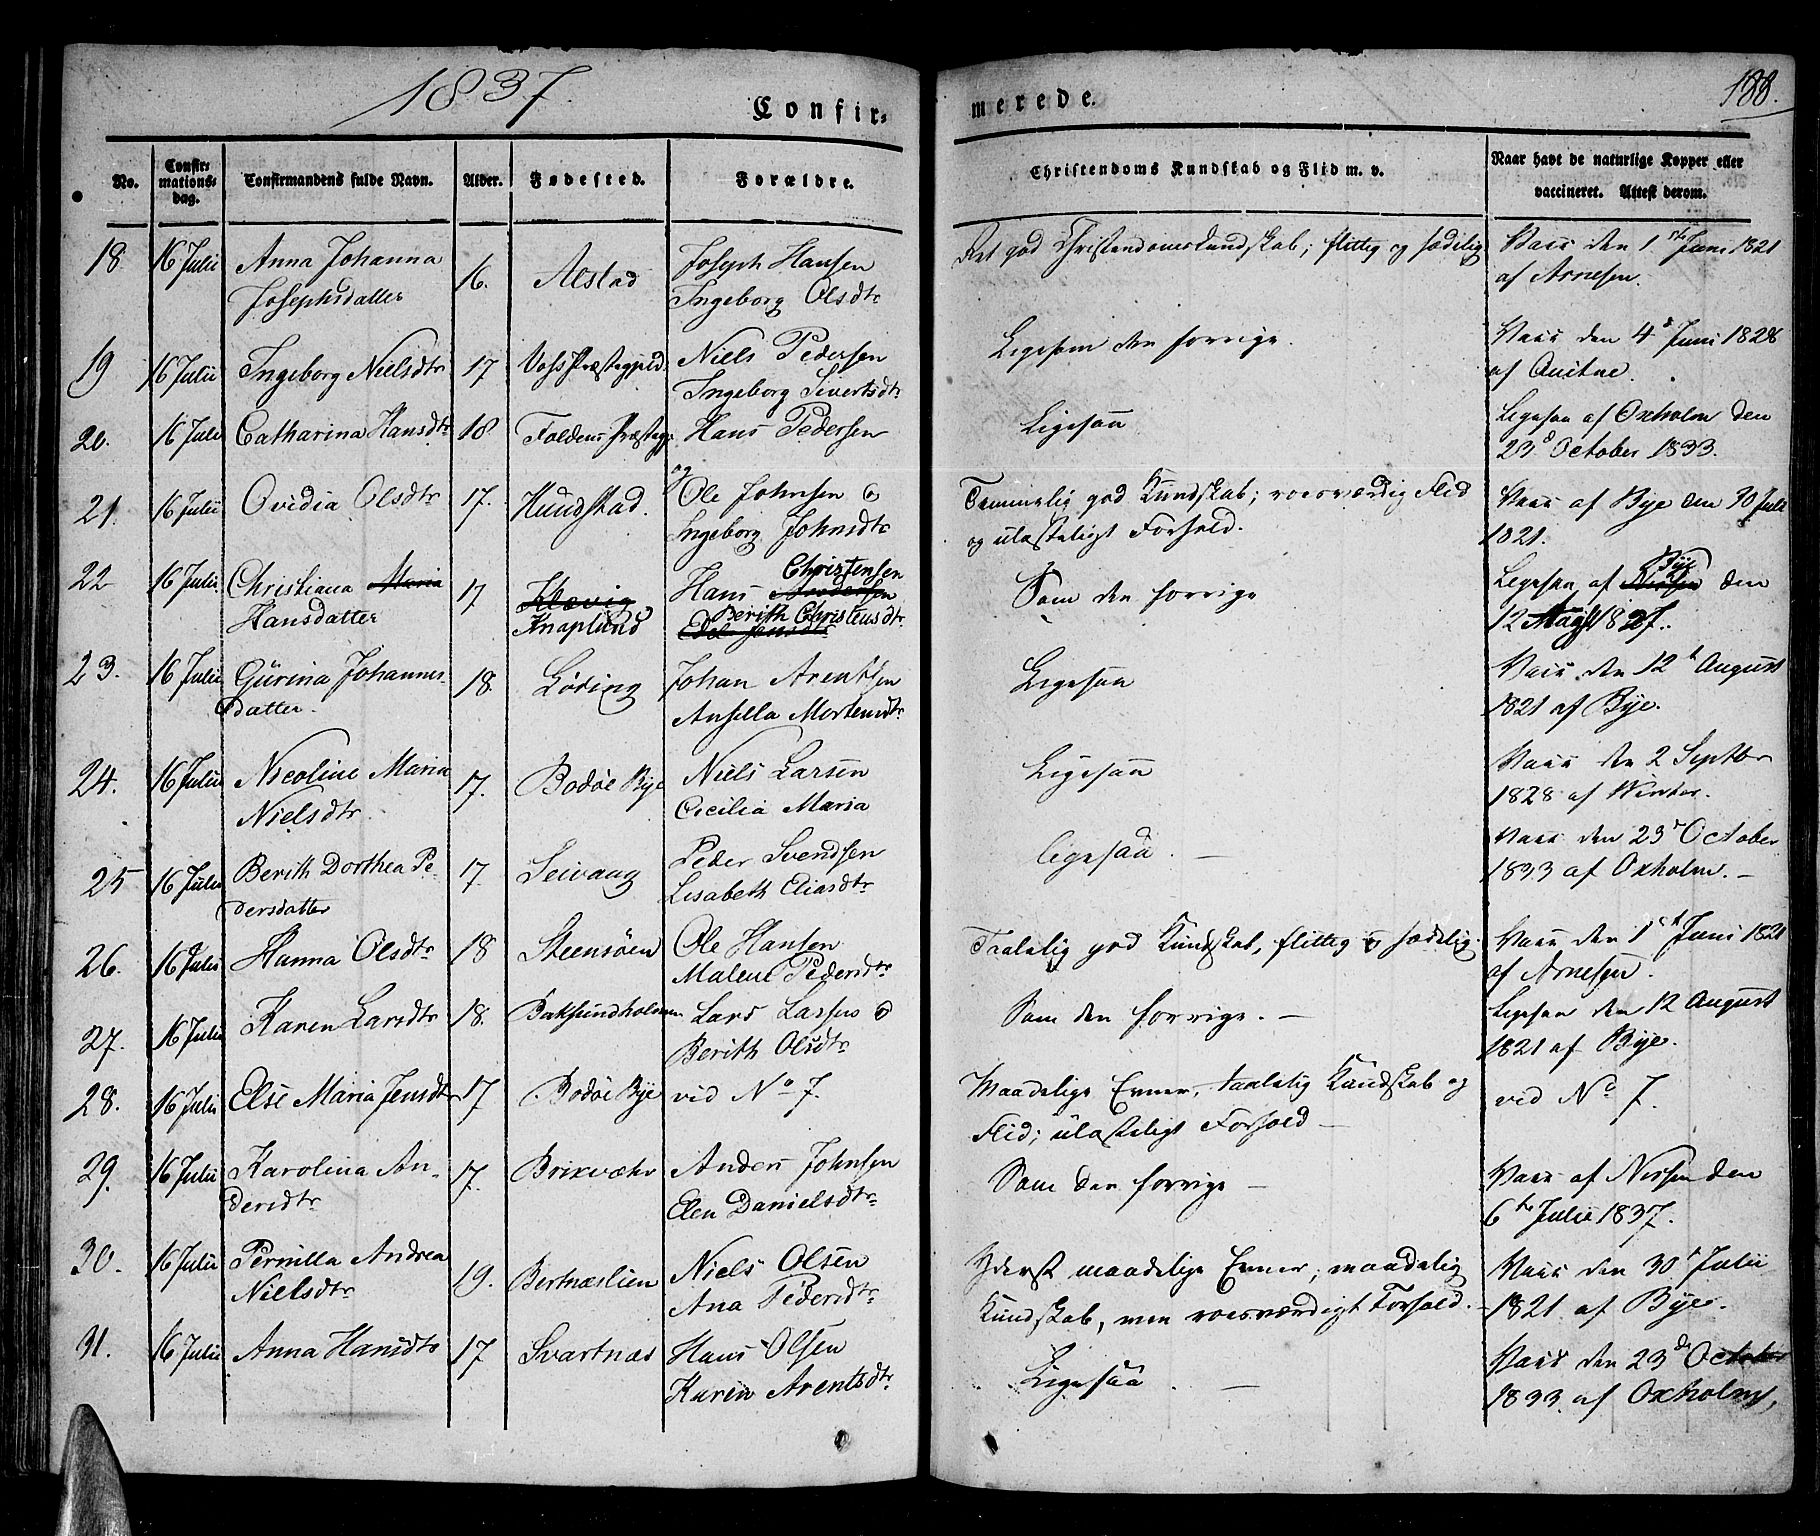 1837. Confirmerede. 188.
No. Confirmationsdag. Confirmandens fulde Navn. Alder. Fødested. Forældre. Christendoms Kundskab og Flid m. v. Naar havt de naturlige Kopper eller vaccineret. Attest derom.
18 16 Julii Anna Johanna 16. Alstad Joseph Hansen Det god Christendomskundskab; flittig og sædelig Vacc den 1ste Juni 1821
Josephsdatter Ingeborg Olsdtr af Arnesen.
19 16 Julii Ingeborg Nielsdtr 17 Voss Præstegjeld Niels Pedersen Ligesom den forrige. Vacc den 4d Juni 1828
Ingeborg Sivertsdtr af
20. 16 Julii Catharina Hansdtr 18 Foldens Præstegj. Hans Pedersen Ligesaa Ligesaa af Oxholm den
23d October 1833.
21. 16 Julii Ovidia Olsdtr 17. Hundstad. Ole Johnsen og Temmelig god Kundskab; roesværdig Flid Vacc af Bye den 30 Juli
Ingeborg Johnsdtr og ulasteligt Forhold. 1821.
22 16 Julii Christiana Maria 17 Klævig Hans Andersen Christensen Som den forrige Ligesaa af Nissen Bye den
Hansdatter Knaplund Berith Christensdtr. 12 1827.
Edel Jensdtr
23. 16 Julii Gurina Johannes- 18. Løding Johan Arentsen Ligesaa Vacc. den 12t August
datter. Ansilla Mortensdtr 1821 af Bye.
24. 16 Julii Nicoline Maria 17. Bodøe Bye Niels Larsen Ligesaa Vacc den 2 Septbr
Nielsdtr. Cicilia Maria 1828 af Winter.
25 16 Julii Berith Dorthea Pe- 17 Seivaag Peder Svendsen ligesaa. — Vacc den 23d October
dersdatter Lisabeth Eliasdtr 1833 af Oxholm. —
26. 16 Julii Hanna Olsdtr 18 Steensøen Ole Hansen Taalelig god Kundskab, flittig og sædelig. Vacc den 1st Juni 1821
Malene Pedersdtr af Arnesen.
27. 16 Julii Karen Larsdtr 18. Baksundholmen Lars Lassen og Som den forrige. — Ligesaa den 12 August
Berith Olsdtr 1821 af Bye.
28. 16 Julii Else Maria Jensdtr 17 Bodøe Bye vid No 7. Maadelige Evner, taalelig Kundskab og vid No 7.
Flid; ulasteligt Forhold —
29. 16 Julii Karolina An- 17. Brixvæhr Anders Johnsen Som den forrige — Vacc af Nissen den
dersdtr Elen Danielsdtr. 6te Julii 1837.
30. 16 Julii Pernilla Andrea 19. Bertnæslien Niels Olsen Yderst maadelige Evner; maadelig Vacc den 30t Julii
Nielsdtr Ana Pedersdtr. Kundskab, men roesværdigt Forhold. 1821 af Bye.
31. 16 Julii Anna Hansdtr 17 Svartnæs Hans Olsen Ligesaa. — Vacc den 23de October
Karen Arentsdtr 1833 af Oxholm,